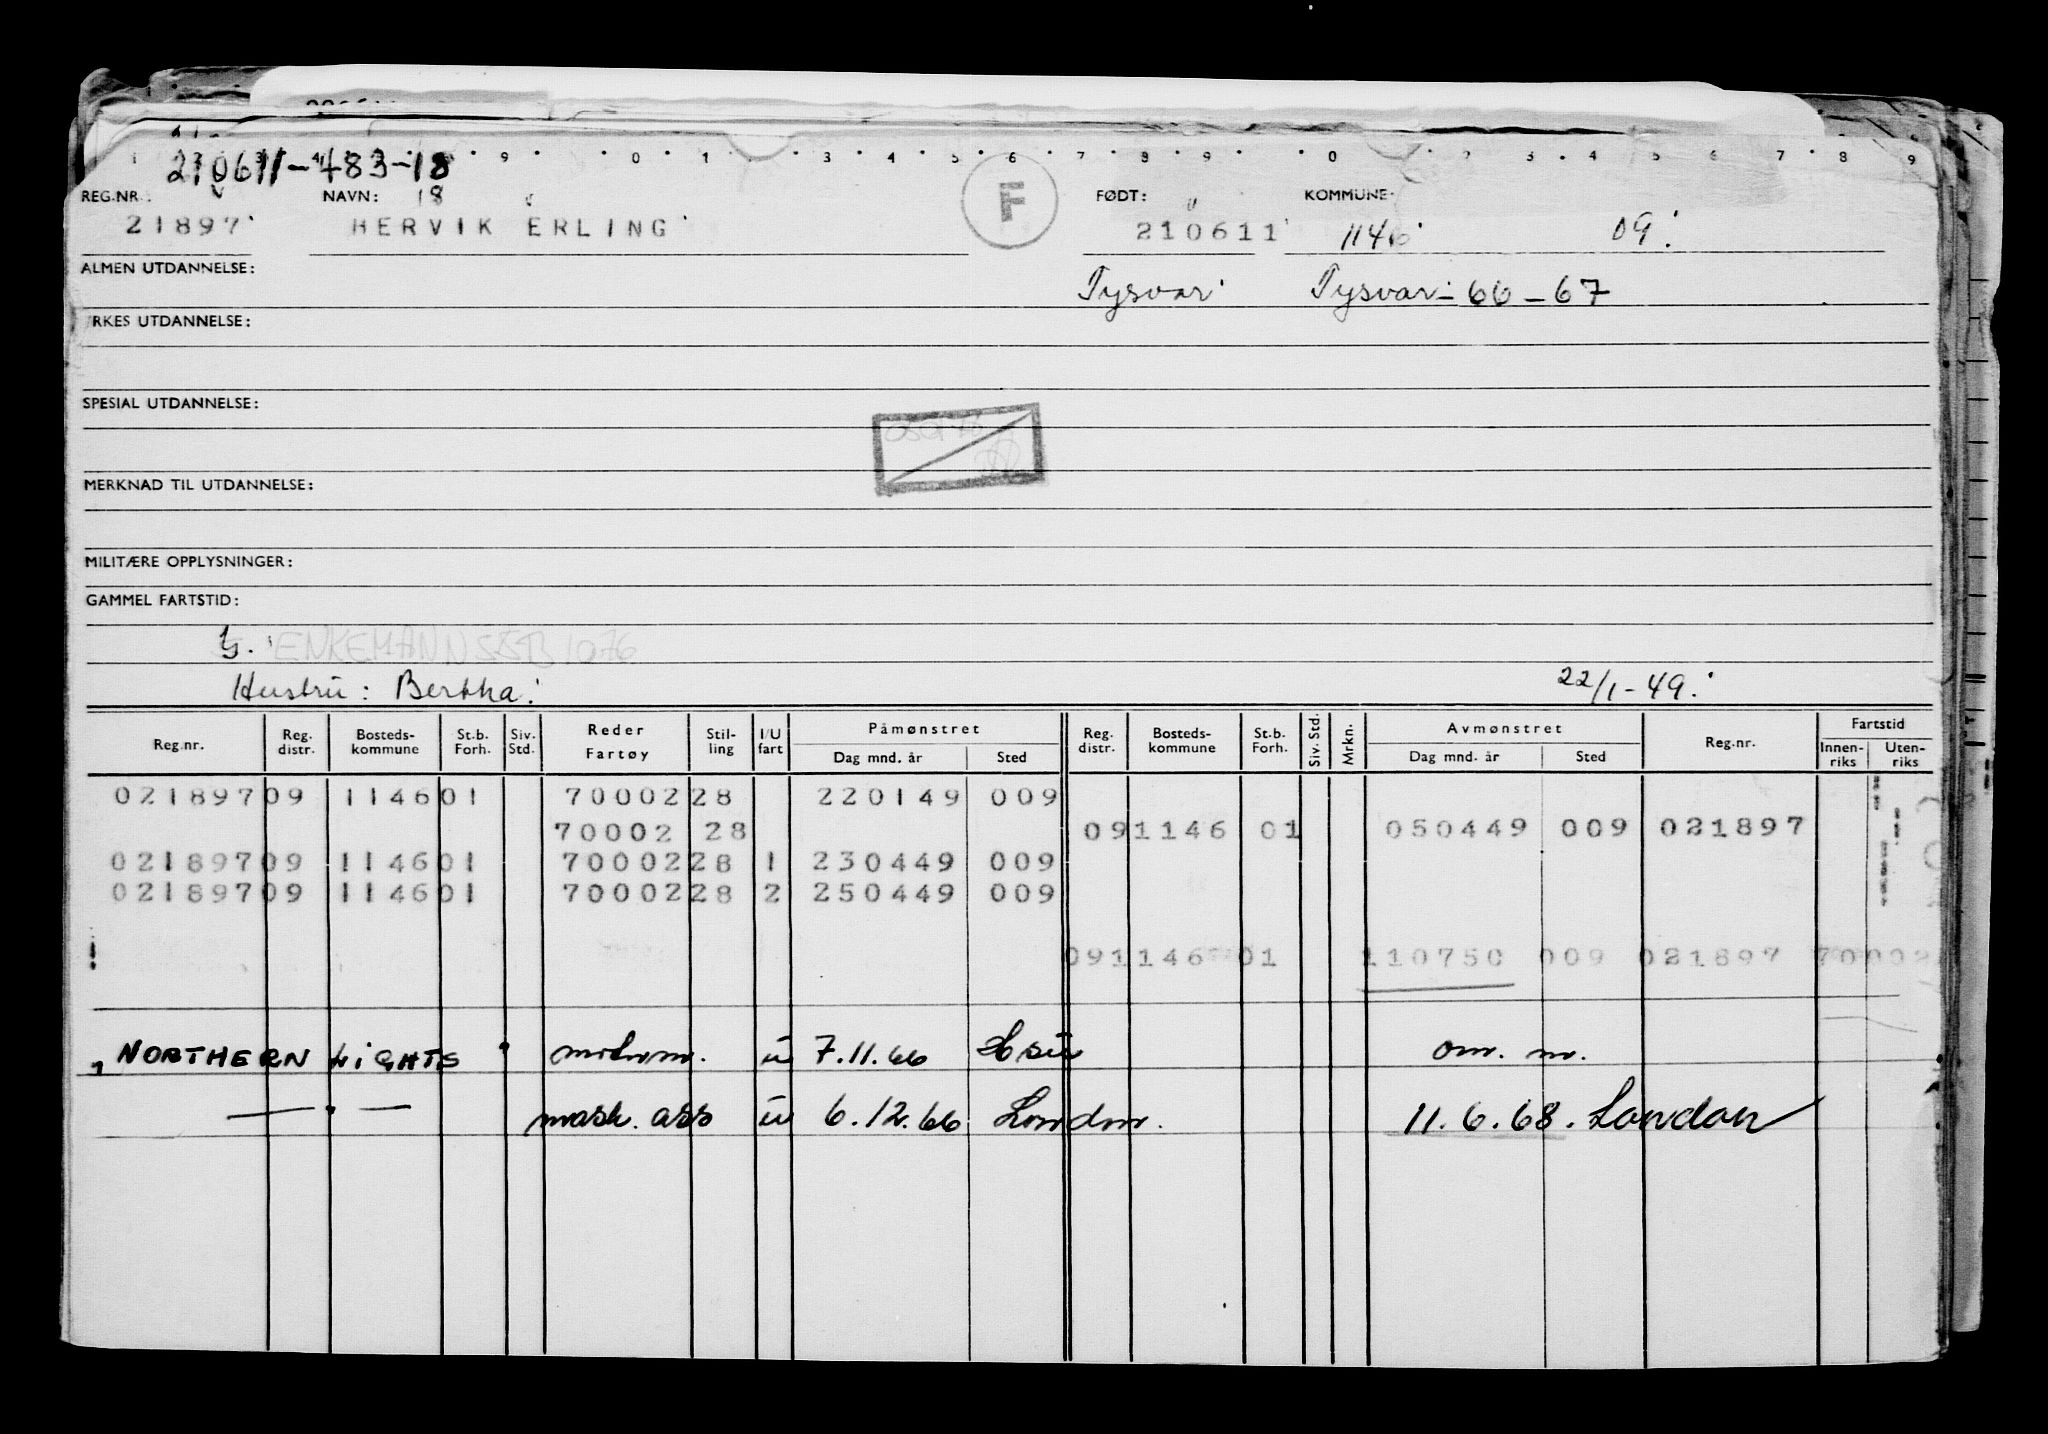 210611-483-18
REG.NR.: NAVN: 18 F FØDT: KOMMUNE:
21897 HERVIK ERLING 210611 1146 09.
ALMEN UTDANNELSE:
Tysvær Tysvær - 66 - 67
RKES UTDANNELSE:
SPESIAL UTDANNELSE:
MERKNAD TIL UTDANNELSE:
MILITÆRE OPPLYSNINGER:
GAMMEL FARTSTID:
G. ENKEMANNSSB 1076
Hustru: Bertha. 22/1-49.
Reg.nr. Reg. distr. Bosteds-kommune St.b. Forh. Siv. Std. Reder Fartøy Stil-ling I/U fart Påmønstret Dag mnd. år Sted Reg. distr. Bosteds-kommune St.b. Forh. Siv. Std. Mrkn. Avmønstret Dag mnd. år Sted Reg.nr. Fartstid Innen-riks Uten-riks
021897 09 1146 01 70002 28 220149 009
70002 28 09 1146 01 050449 009 021897
021897 09 1146 01 70002 28 1 230449 009
021897 09 1146 01 70002 28 2 250449 009
09 1146 01 110750 009 021897 70002
NORTHERN LIGHTS motorm. u 7.11.66 om. m.
— " — mask. ass u 6.12.66 London. 11.6.68. London